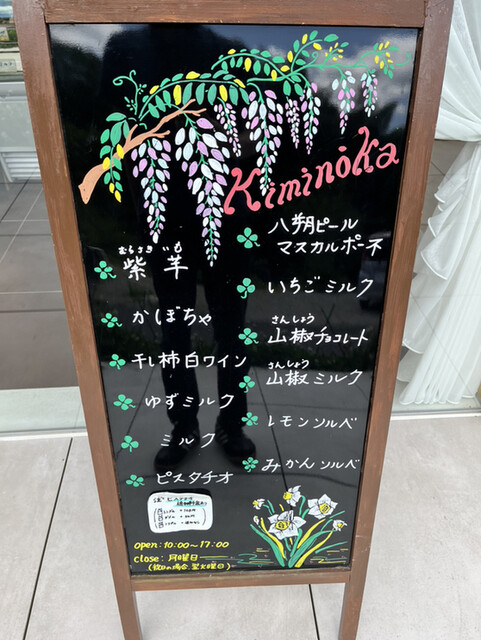 Kiminoka
むらさき いも
紫芋
かぼちゃ
干し柿白ワイン
ゆずミルク
ミルク
ピスタチオ
八朔ピール
マスカルポーネ
いちごミルク
さんしょう
山椒チョコレート
さんしょう
山椒ミルク
レモンソルベ
みかんソルベ
open:10:00〜17:00
close:月曜日
(祝日の場合、翌火曜日)